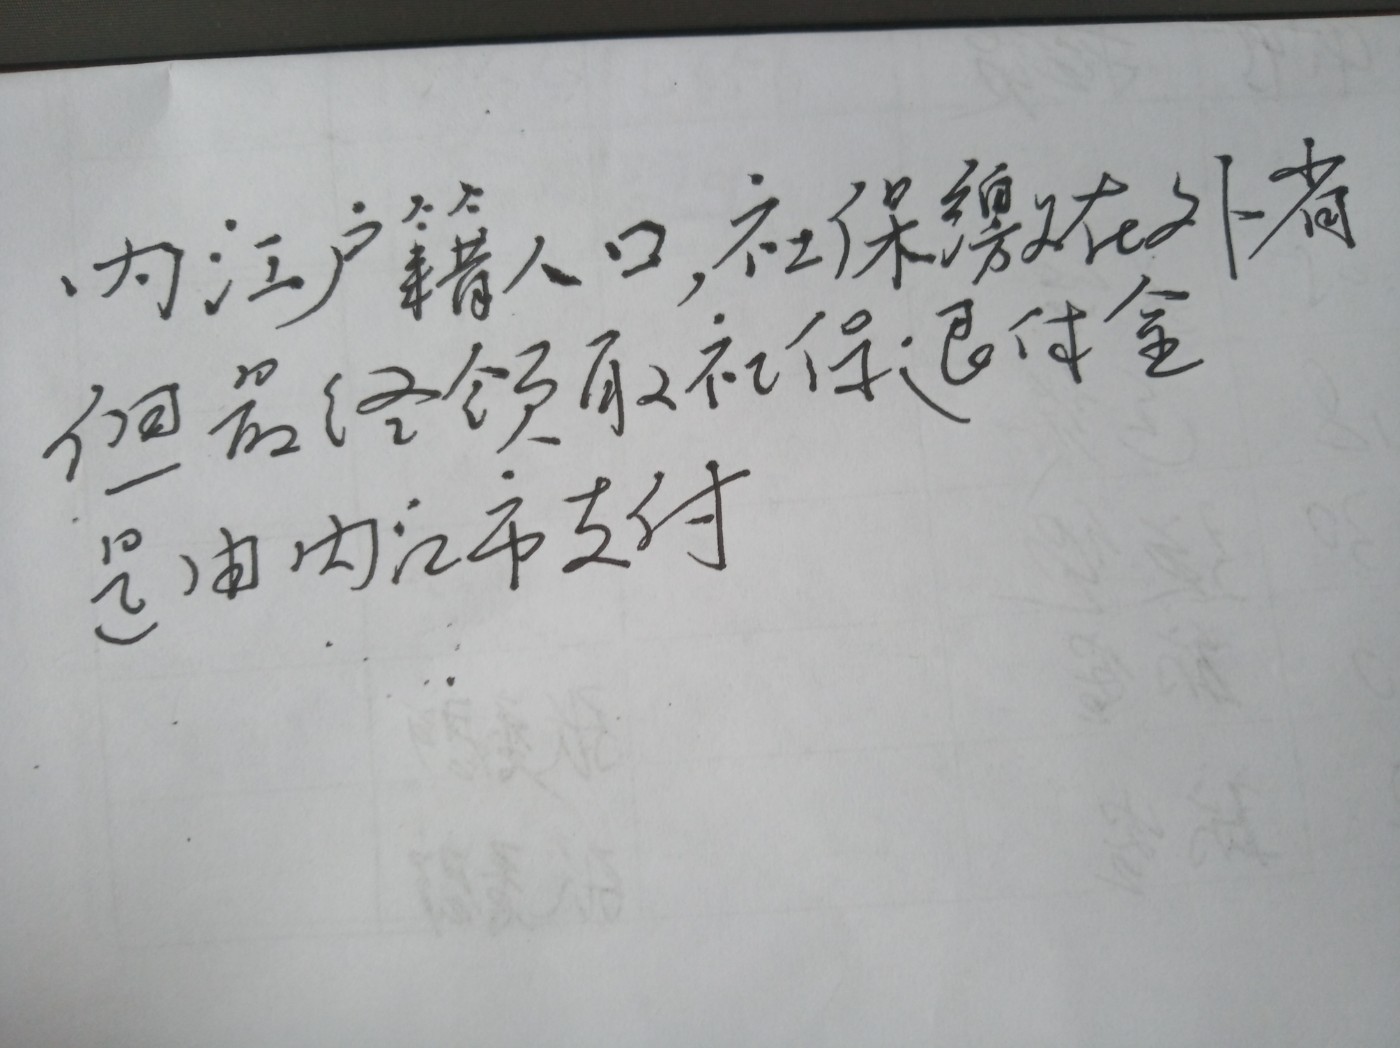 内江户籍人口,社保缴在外省
但最终领取社保退休金
是由内江市支付